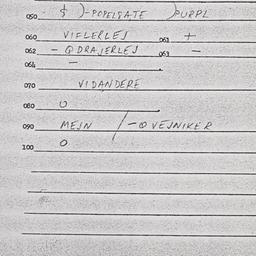 050 $ )-POPELGATE )PURPL
060 VIFLERLEJ 061 +
062 - Q DRAJERLEJ 063 -
064 -
070 VIDANDERE
080 O
090 MEJN /-Q VEJNIKER
100 O